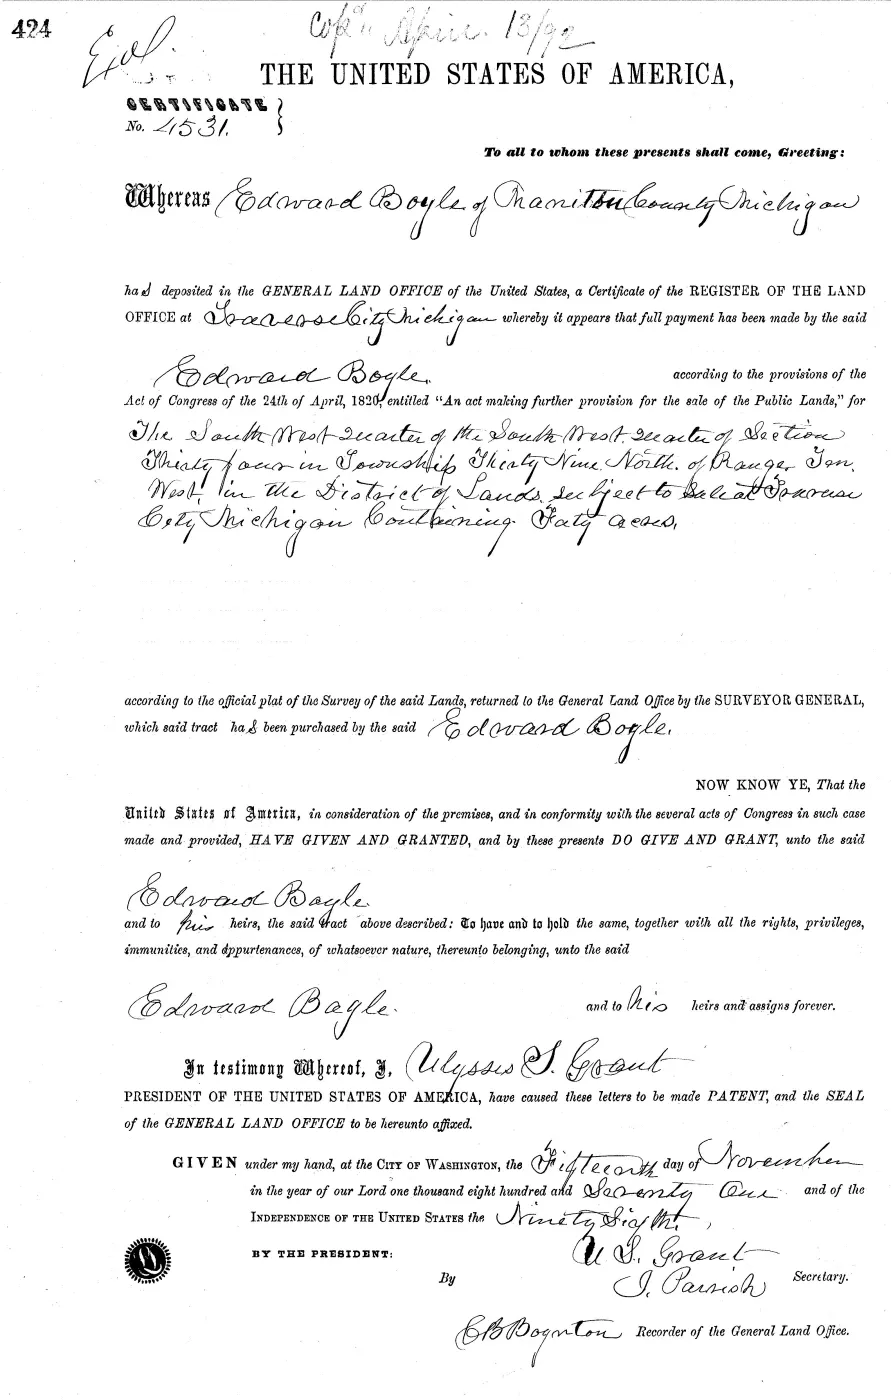 424
Exd.
Cop'd April 13/92
THE UNITED STATES OF AMERICA,
CERTIFICATE
No. 4531.
To all to whom these presents shall come, Greeting:
Whereas Edward Boyle of Manitou County Michigan
has deposited in the GENERAL LAND OFFICE of the United States, a Certificate of the REGISTER OF THE LAND
OFFICE at Traverse City Michigan whereby it appears that full payment has been made by the said
Edward Boyle. according to the provisions of the
Act of Congress of the 24th of April, 1820, entitled "An act making further provision for the sale of the Public Lands," for
The South West quarter of the South West quarter of Section
Thirty four in Township Thirty Nine North. of Range Ten.
West, in the District of Lands subject to Sale at Traverse
City Michigan Containing Forty acres.
according to the official plat of the Survey of the said Lands, returned to the General Land Office by the SURVEYOR GENERAL,
which said tract has been purchased by the said Edward Boyle.
NOW KNOW YE, That the
United States of America, in consideration of the premises, and in conformity with the several acts of Congress in such case
made and provided, HAVE GIVEN AND GRANTED, and by these presents DO GIVE AND GRANT, unto the said
Edward Boyle
and to his heirs, the said tract above described: To have and to hold the same, together with all the rights, privileges,
immunities, and appurtenances, of whatsoever nature, thereunto belonging, unto the said
Edward Boyle. and to his heirs and assigns forever.
In testimony Whereof, I, Ulysses S. Grant
PRESIDENT OF THE UNITED STATES OF AMERICA, have caused these letters to be made PATENT, and the SEAL
of the GENERAL LAND OFFICE to be hereunto affixed.
GIVEN under my hand, at the CITY OF WASHINGTON, the Fifteenth day of November
in the year of our Lord one thousand eight hundred and Seventy One and of the
INDEPENDENCE OF THE UNITED STATES the Ninety Sixth.
BY THE PRESIDENT: U S. Grant
By J. Parrish Secretary.
C B Boynton Recorder of the General Land Office.